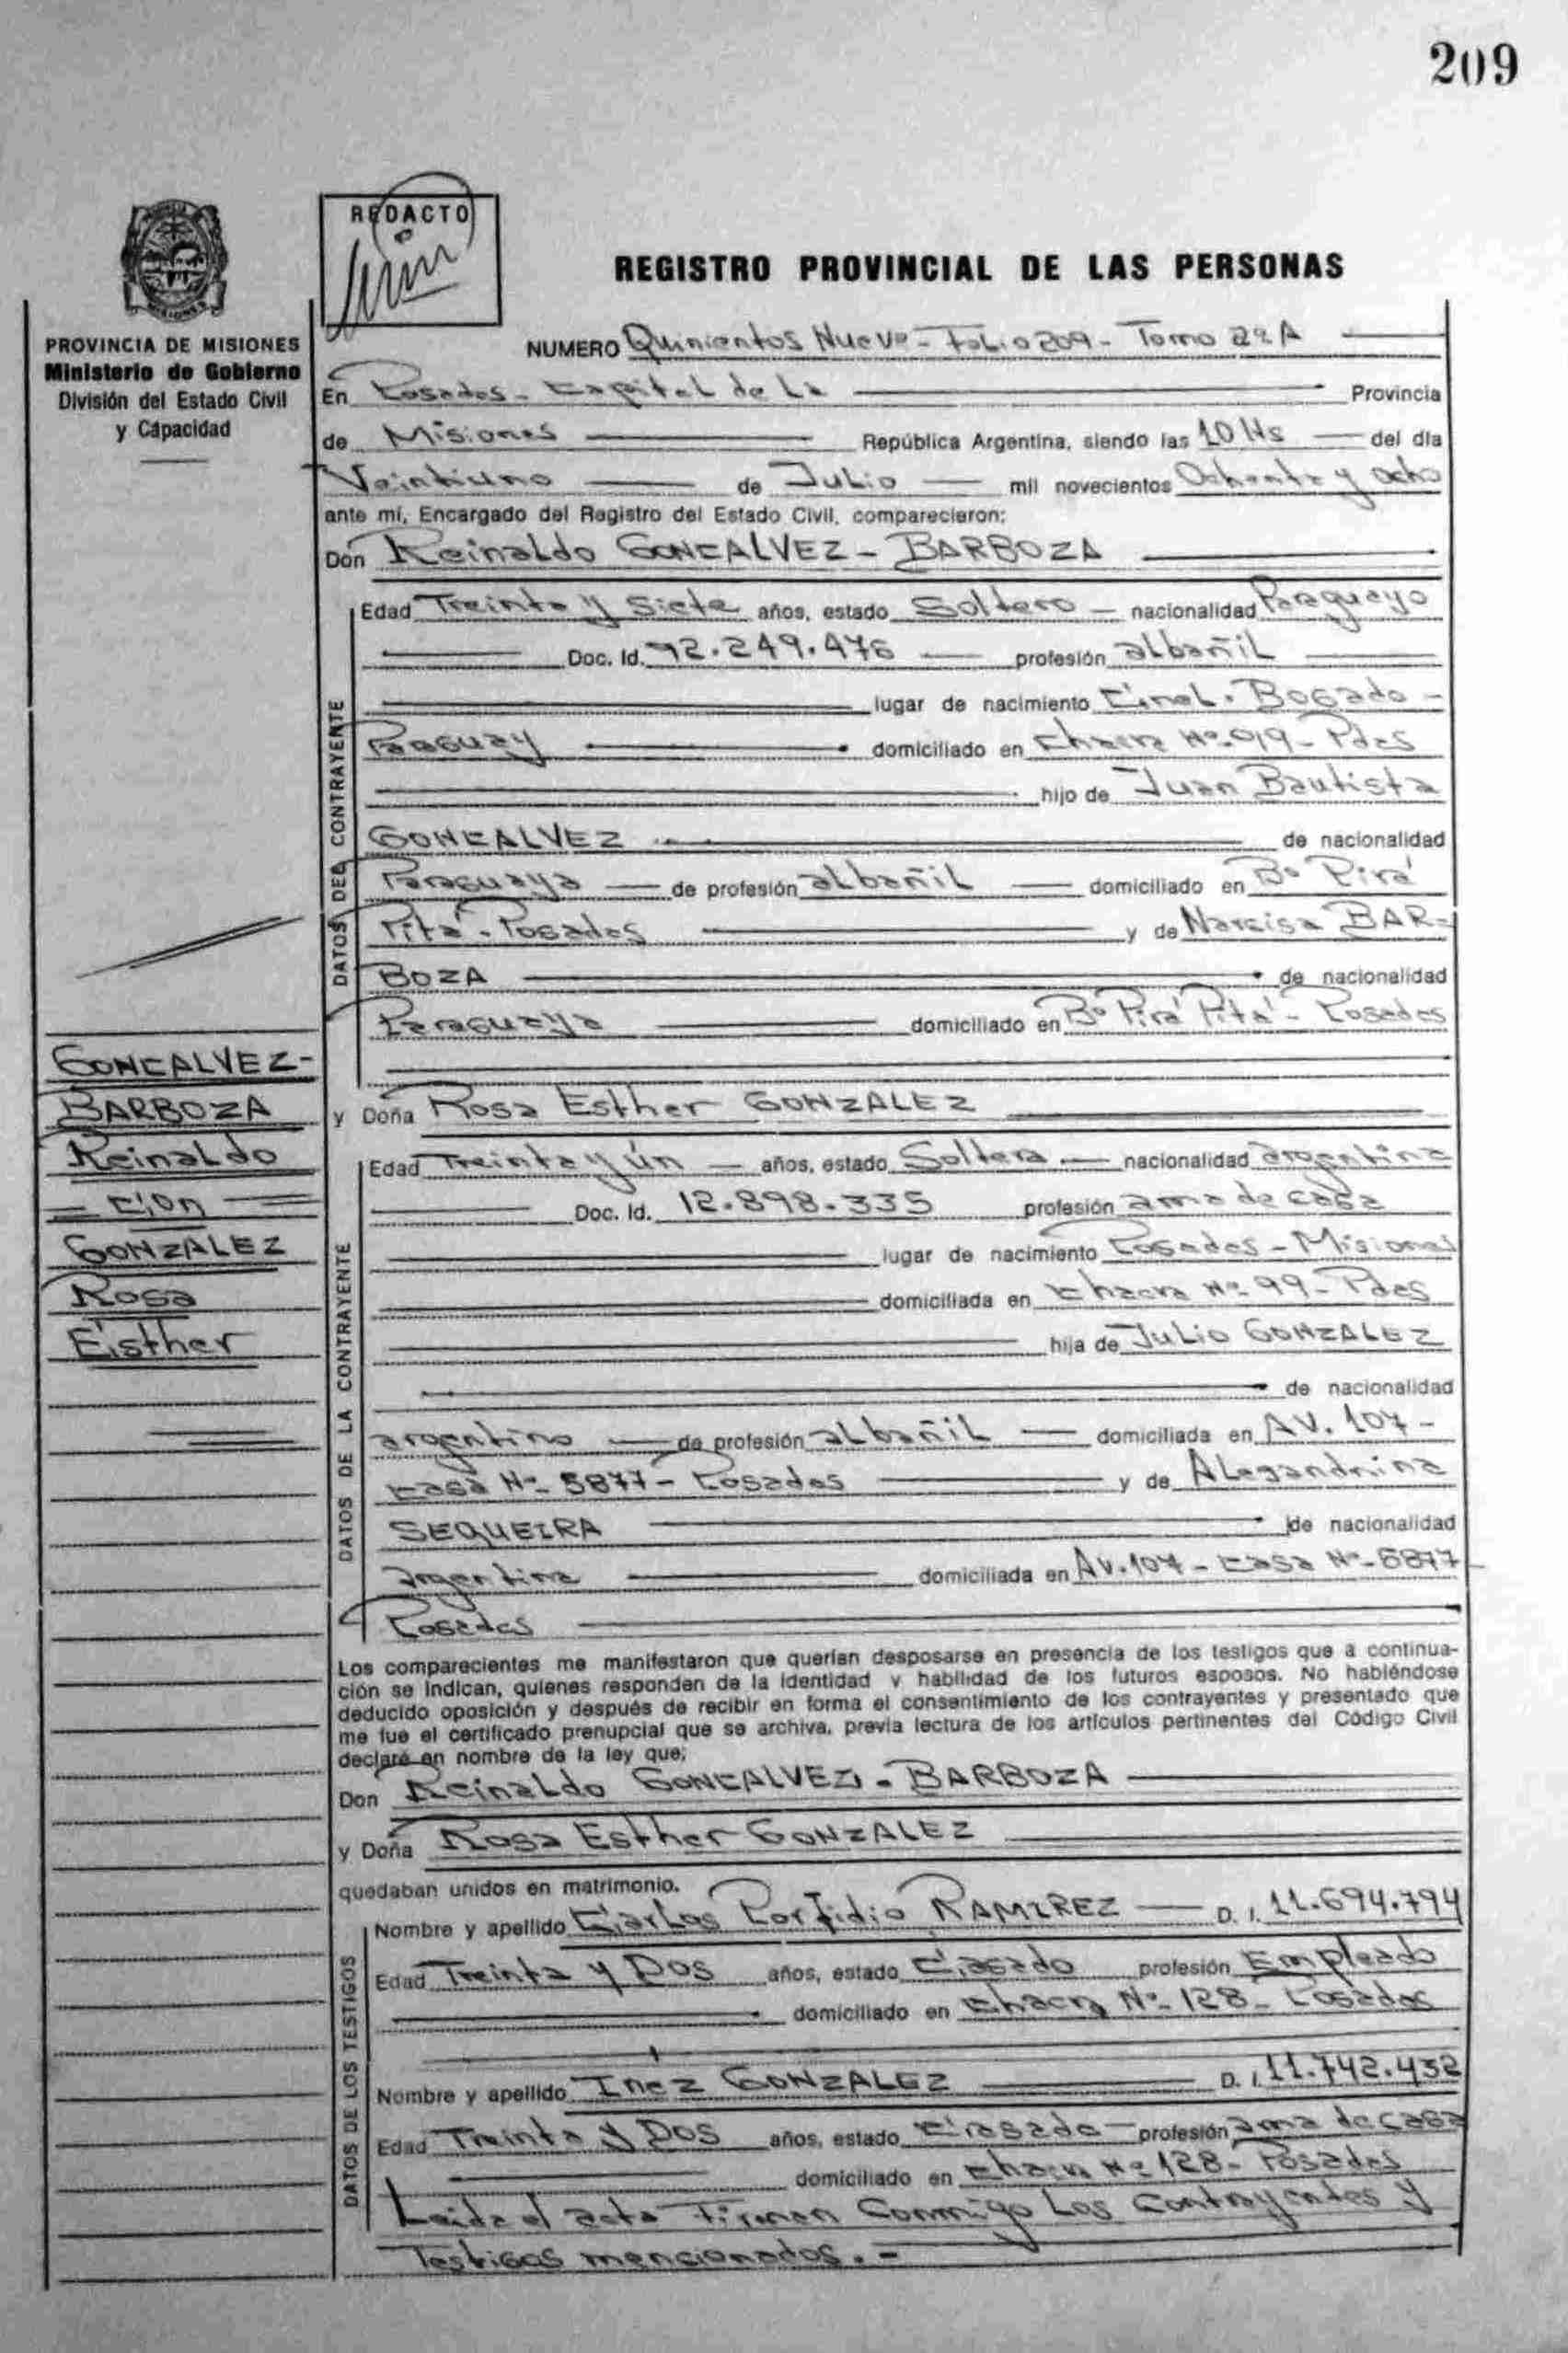 209
REDACTO
REGISTRO PROVINCIAL DE LAS PERSONAS
PROVINCIA DE MISIONES
Ministerio de Gobierno
División del Estado Civil
y Capacidad
NUMERO Quinientos Nueve - Folio 209 - Tomo 2º A
En Posadas - Capital de La Provincia
de Misiones República Argentina, siendo las 10 Hs del día
Veintiuno de Julio mil novecientos Ochenta y ocho
ante mí, Encargado del Registro del Estado Civil, comparecieron:
Don Reinaldo GONCALVEZ - BARBOZA
DATOS DEL CONTRAYENTE
Edad Treinta y Siete años, estado Soltero - nacionalidad Paraguayo
Doc. Id. 92.249.476 profesión albañil
lugar de nacimiento Cnel. Bogado -
Paraguay domiciliado en Chacra Nº Pdas
hijo de Juan Bautista
GONCALVEZ de nacionalidad
Paraguaya de profesión albañil domiciliado en Bº Pirá
Pitá - Posadas y de Narcisa BAR-
BOZA de nacionalidad
Paraguaya domiciliado en Bº Pirá Pitá - Posadas
GONCALVEZ-
BARBOZA
Reinaldo
con
GONZALEZ
Rosa
Esther
y Doña Rosa Esther GONZALEZ
DATOS DE LA CONTRAYENTE
Edad Treinta y ún años, estado Soltera nacionalidad argentina
Doc. Id. 12.898.335 profesión ama de casa
lugar de nacimiento Posadas - Misiones
domiciliada en Chacra Nº 99 - Pdas
hija de Julio GONZALEZ
de nacionalidad
argentino de profesión albañil domiciliada en AV. 107 -
casa Nº 5877 - Posadas y de Alegandrina
SEQUEIRA de nacionalidad
argentina domiciliada en Av. 107 - casa Nº 5877
Posadas
Los comparecientes me manifestaron que querían desposarse en presencia de los testigos que a continua-
ción se indican, quienes responden de la identidad y habilidad de los futuros esposos. No habiéndose
deducido oposición y después de recibir en forma el consentimiento de los contrayentes y presentado que
me fue el certificado prenupcial que se archiva, previa lectura de los artículos pertinentes del Código Civil
declaré en nombre de la ley que;
Don Reinaldo GONCALVEZ - BARBOZA
y Doña Rosa Esther GONZALEZ
quedaban unidos en matrimonio.
DATOS DE LOS TESTIGOS
Nombre y apellido Carlos Porfidio RAMIREZ D. I. 11.694.794
Edad Treinta y Dos años, estado Casado profesión Empleado
domiciliado en Chacra Nº 128 - Posadas
Nombre y apellido Inez GONZALEZ D. I. 11.742.432
Edad Treinta y Dos años, estado Casada profesión ama de casa
domiciliado en Chacra Nº 128 - Posadas
Leida el acta Firman Conmigo Los Contrayentes y
Testigos mencionados. -